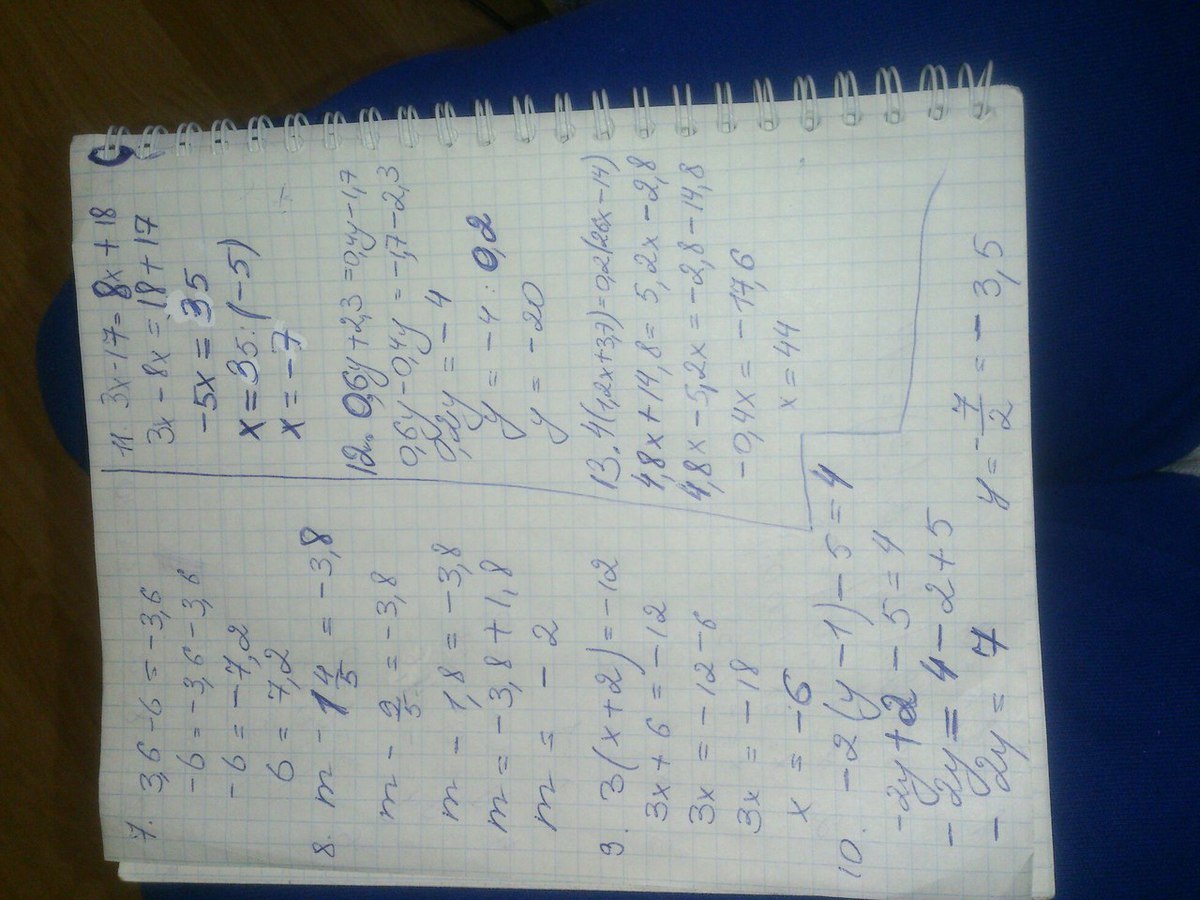 7. 3,6 - б = -3,6
-б = -3,6 - 3,6
-б = -7,2
б = 7,2
8. m - 1 4/5 = -3,8
m - 9/5 = -3,8
m - 1,8 = -3,8
m = -3,8 + 1,8
m = -2
9. 3(x+2) = -12
3x + 6 = -12
3x = -12 - 6
3x = -18
x = -6
10. -2(y-1) - 5 = 4
-2y + 2 - 5 = 4
-2y = 4 - 2 + 5
-2y = 7
y = -7/2 = -3,5
11. 3x - 17 = 8x + 18
3x - 8x = 18 + 17
-5x = 35
x = 35 : (-5)
x = -7
12. 0,6y + 2,3 = 0,4y - 1,7
0,6y - 0,4y = -1,7 - 2,3
0,2y = -4
y = -4 : 0,2
y = -20
13. 4(1,2x + 3,7) = 0,2(26x - 14)
4,8x + 14,8 = 5,2x - 2,8
4,8x - 5,2x = -2,8 - 14,8
-0,4x = -17,6
x = 44